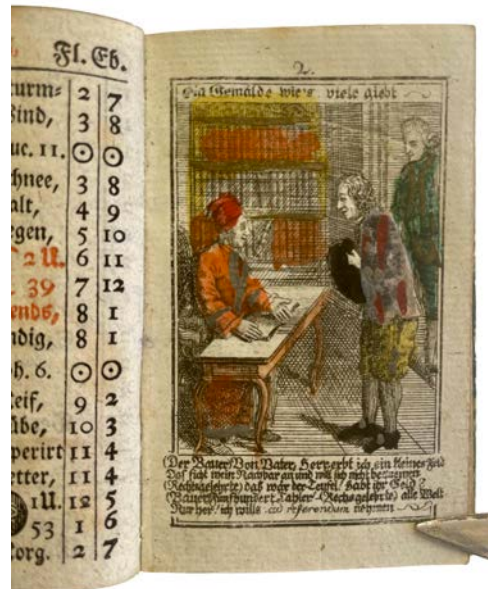 Fl. Eb.
turm= 2 7
Wind, 3 8
uc. 11. ⊙ ⊙
chnee, 3 8
alt, 4 9
egen, 5 10
2 U. 6 11
39 7 12
ends, 8 1
ndig, 8 1
h. 6. ⊙ ⊙
Reif, 9 2
übe, 10 3
perirt 11 4
etter, 11 4
1 U. 12 5
53 1 6
torg. 2 7
2.
Ein Gemälde wie's viele giebt
(Der Bauer) Von Vater, Herr, erbt ich ein kleines Feld
Das ficht mein Nachbar an und will sich nicht
(Rechtsgelehrte) das wär der Teufel / habt ihr Geld?
(Bauer) fünfhundert Thaler (Rechsgelehrte) alle Welt
Nur her / ich wills ad referendum nehmen